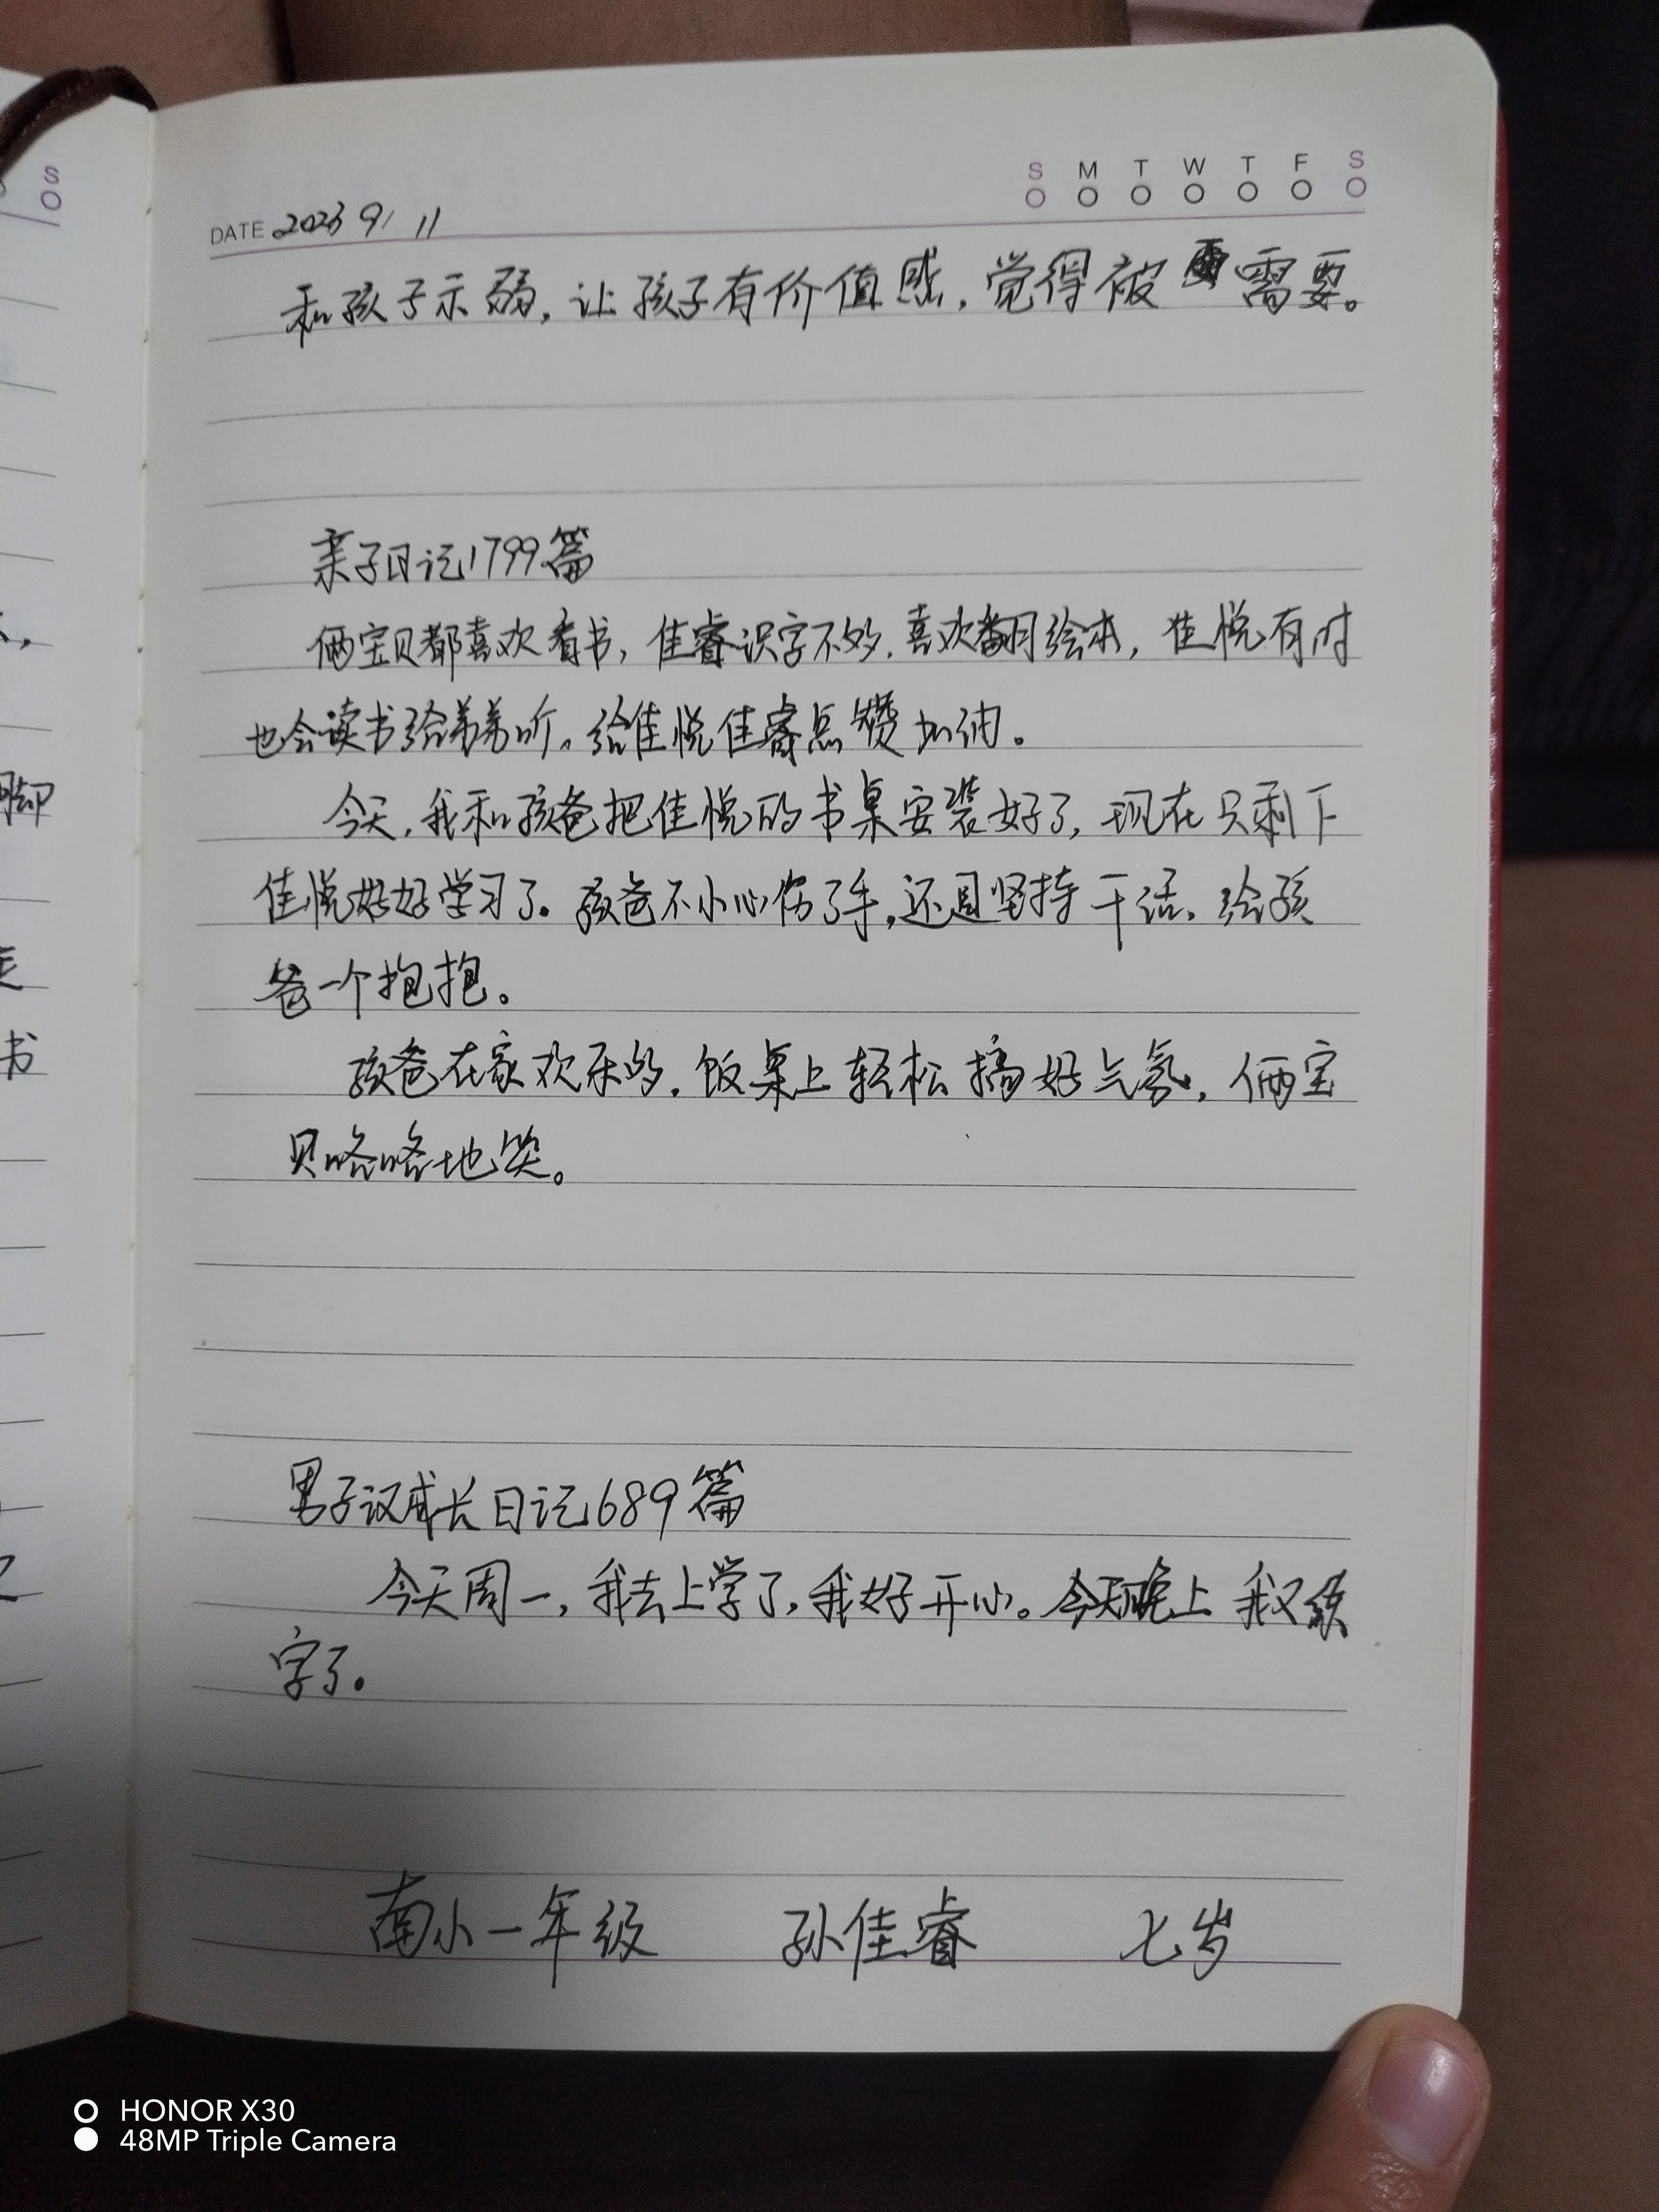 S M T W T F S
DATE 2023 9/ 11
和孩子示弱,让孩子有价值感,觉得被需要。
亲子日记1799篇
俩宝贝都喜欢看书,佳睿识字不多,喜欢翻绘本,佳悦有时
也会读书给弟弟听。给佳悦佳睿点赞加油。
今天,我和孩爸把佳悦的书桌安装好了,现在只剩下
佳悦好好学习了。孩爸不小心伤了手,还是坚持干活,给孩
爸一个抱抱。
孩爸在家欢乐多,饭桌上轻松搞好气氛,俩宝
贝咯咯地笑。
男子汉成长日记689篇
今天周一,我去上学了,我好开心。今天晚上我又练
字了。
南小一年级 孙佳睿 七岁
S
脚
书
HONOR X30
48MP Triple Camera